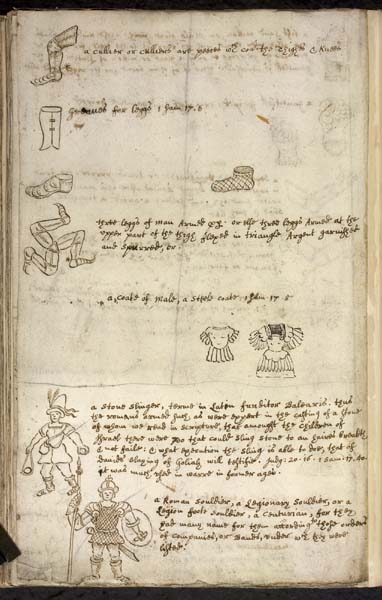 a cullier or culliers are peeces wch cover the Thighes & Knees
Greaves for leggs 1 Sam: 17. 6
three leggs of man Armed &c. or the three leggs Armed at the
upper part of the thigh flexed in triangle Argent garnished
and Spurred, or.
a coate of Male, a Steele coate. 1 Sam. 17. 5
a Stone Slinger, terme in Laten funditor Balearis. thus
the romans armed such, as were expert in the casting of a stone
of whom we read in Scripture, that amongst the children of
Israel there were 700 that could sling stone to an haires breadth
& not faile. & what execution the sling is able to doe, that of
Davids slaying of Goliah will testifie. Judg: 20. 16. 1 Sam: 17. 40.
it was much used in warre in former ages.
a Roman Souldier, a Legionary Souldier, or a
Legion foote Souldier, a Centurian, for they
had many name for them according those orders
of Companies, or Bands, under wch they were
listed.